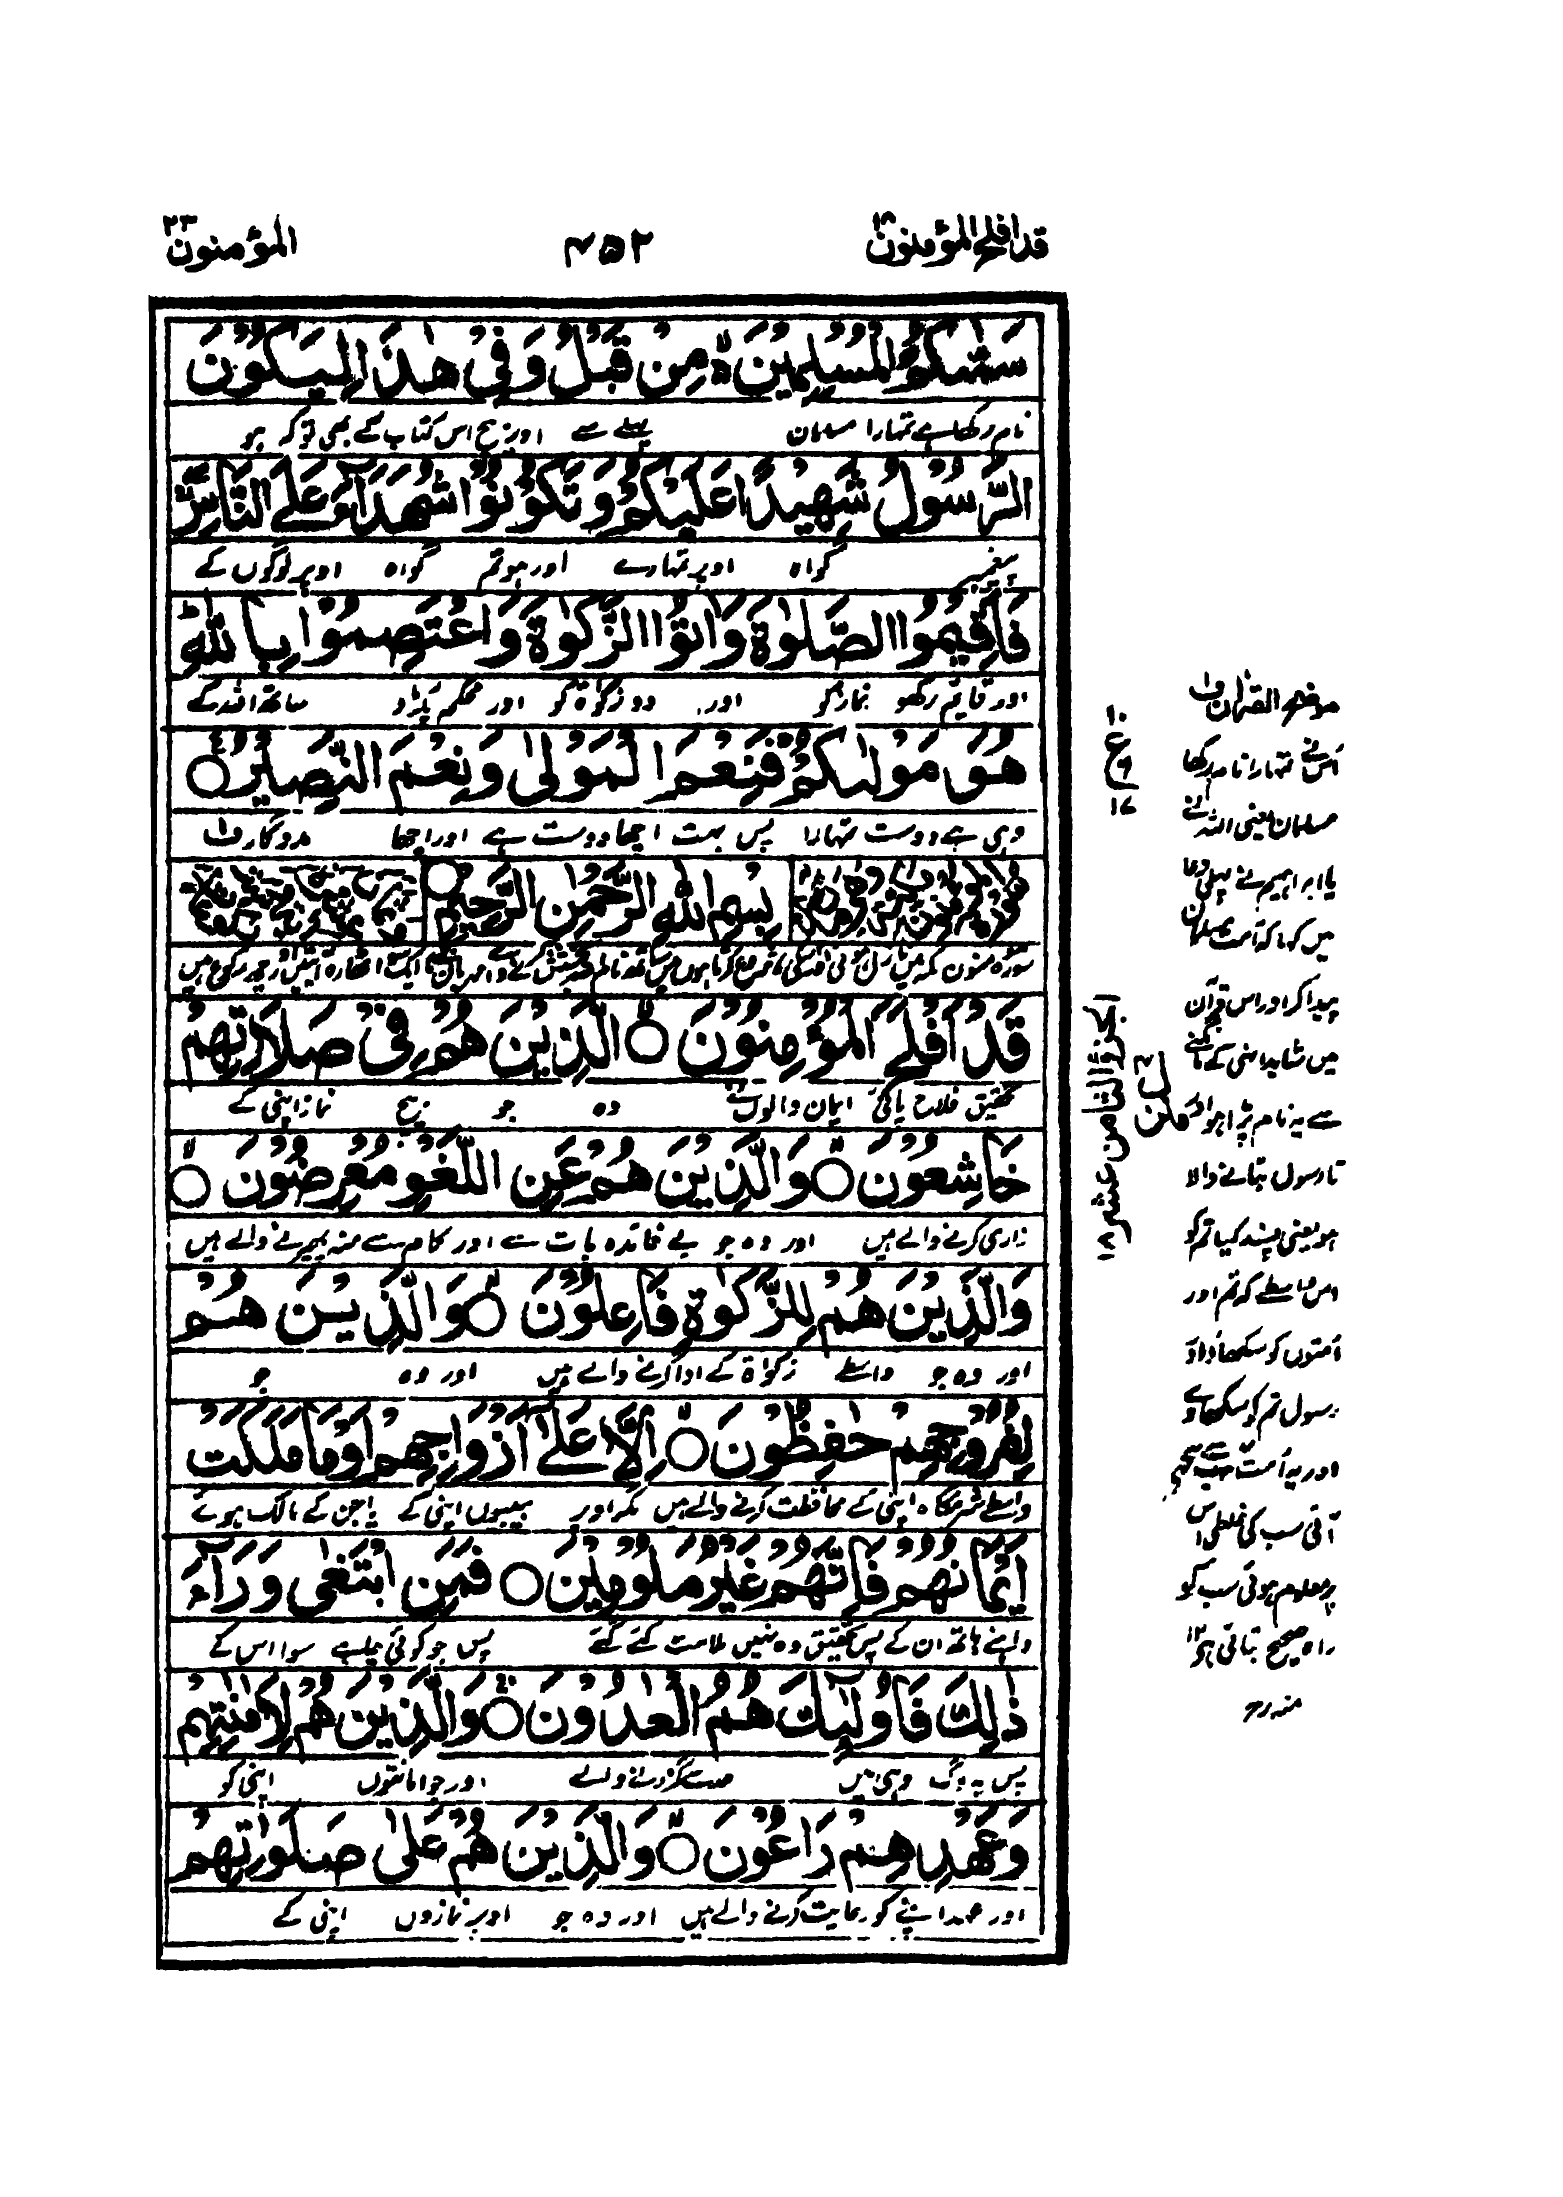 قد افلح المؤمنون ۱۸
۴۵۲
المؤمنون ۲۳
سَمّٰىكُمُ الْمُسْلِمِيْنَ ەۙ مِنْ قَبْلُ وَفِيْ هٰذَا لِيَكُوْنَ
نام رکھا ہے تمہارا مسلمان پہلے سے اور بیچ اس کتاب کے بھی تو کہ ہو
الرَّسُوْلُ شَهِيْدًا عَلَيْكُمْ وَتَكُوْنُوْا شُهَدَآءَ عَلَى النَّاسِ ۖ
پیغمبر گواہ اوپر تمہارے اور ہو تم گواہ اوپر لوگوں کے
فَاَقِيْمُوا الصَّلٰوةَ وَاٰتُوا الزَّكٰوةَ وَاعْتَصِمُوْا بِاللّٰهِ ؕ
اور قایم رکھو نماز کو اور دو زکوٰة کو اور محکم پکڑو ساتھ اللہ کے
هُوَ مَوْلٰىكُمْ ۚ فَنِعْمَ الْمَوْلٰى وَنِعْمَ النَّصِيْرُ ○
وہی ہے دوست تمہارا پس بہت اچھا دوست ہے اور اچھا مددگار ف
بِسْمِ اللّٰهِ الرَّحْمٰنِ الرَّحِيْمِ ○
قَدْ اَفْلَحَ الْمُؤْمِنُوْنَ ○ الَّذِيْنَ هُمْ فِيْ صَلَاتِهِمْ
تحقیق فلاح پائی ایمان والوں نے وہ جو بیچ نماز اپنی کے
خَاشِعُوْنَ ○ وَالَّذِيْنَ هُمْ عَنِ اللَّغْوِ مُعْرِضُوْنَ ○
زاری کرنے والے ہیں اور وہ جو بے فائدہ بات سے اور کام سے منہ پھیرنے والے ہیں
وَالَّذِيْنَ هُمْ لِلزَّكٰوةِ فَاعِلُوْنَ ○ وَالَّذِيْنَ هُمْ
اور وہ جو واسطے زکوٰة کے ادا کرنے والے ہیں اور وہ جو
لِفُرُوْجِهِمْ حٰفِظُوْنَ ○ اِلَّا عَلٰى اَزْوَاجِهِمْ اَوْ مَا مَلَكَتْ
واسطے شرمگاہ اپنی کے محافظت کرنے والے ہیں مگر اوپر بیبیوں اپنی کے یا جن کے مالک ہوئے
اَيْمَانُهُمْ فَاِنَّهُمْ غَيْرُ مَلُوْمِيْنَ ○ فَمَنِ ابْتَغٰى وَرَآءَ
داہنے ہاتھ ان کے پس تحقیق وہ نہیں ملامت کئے گئے پس جو کوئی چاہے سوا اس کے
ذٰلِكَ فَاُولٰٓئِكَ هُمُ الْعٰدُوْنَ ○ وَالَّذِيْنَ هُمْ لِاَمٰنٰتِهِمْ
پس یہ لوگ وہی ہیں حد سے گزرنے والے اور جو امانتوں اپنی کو
وَعَهْدِهِمْ رَاعُوْنَ ○ وَالَّذِيْنَ هُمْ عَلٰى صَلَوٰتِهِمْ
اور عہد اپنے کو رعایت کرنے والے ہیں اور وہ جو اوپر نمازوں اپنی کے
۱۰
ع
۱۷
الجزء الثامن عشر ۱۸
موضح القرآن ف
اس نے تمہارا نام رکھا
مسلمان یعنی اللہ نے
یا ابراہیم نے پہلی دعا
میں کہا کہ امت مسلمان
پیدا کر اور اس قرآن
میں شاید انہی کے مانگنے
سے یہ نام پڑا ہو اور
تا رسول بتانے والا
ہو یعنی پسند کیا تم کو
اس واسطے کہ تم اور
امتوں کو سکھاؤ اور
رسول تم کو سکھاوے
اور یہ امت سب سے پیچھے
آئی سب کی غلطی اس
پر معلوم ہوئی سب کو
راہ صحیح بتاتی ہے ۱۲
منہ رح